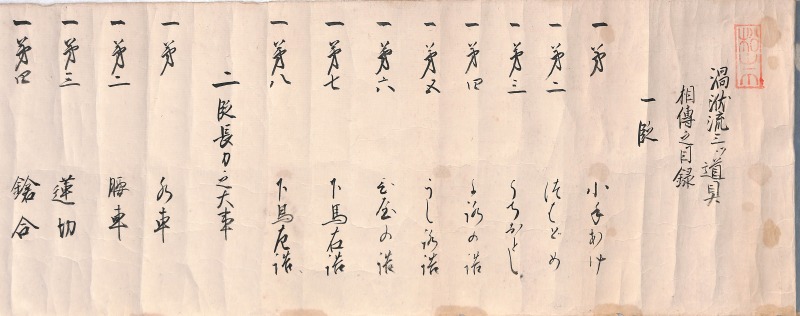 渦洑流三ツ道具
相傳之目録
一段
一 第一 小手あけ
一 第二 つはとめ
一 第三 うちおとし
一 第四
一 第五 うし詰
一 第六 の詰
一 第七 下馬右詰
一 第八 下馬左詰
二段長刀之大事
一 第一 水車
一 第二 腰車
一 第三 蓮切
一 第四 鎗合